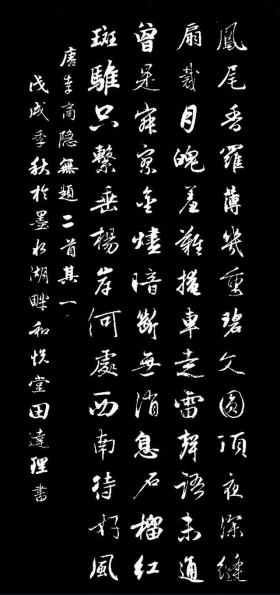 鳳尾香羅薄幾重碧文圓頂夜深縫
扇裁月魄羞難掩車走雷聲語未通
曾是寂寥金燼暗斷無消息石榴紅
斑騅只繫垂楊岸何處西南待好風
唐李商隐無題二首其一
戊戌季秋於墨水湖畔和悦堂田達理書